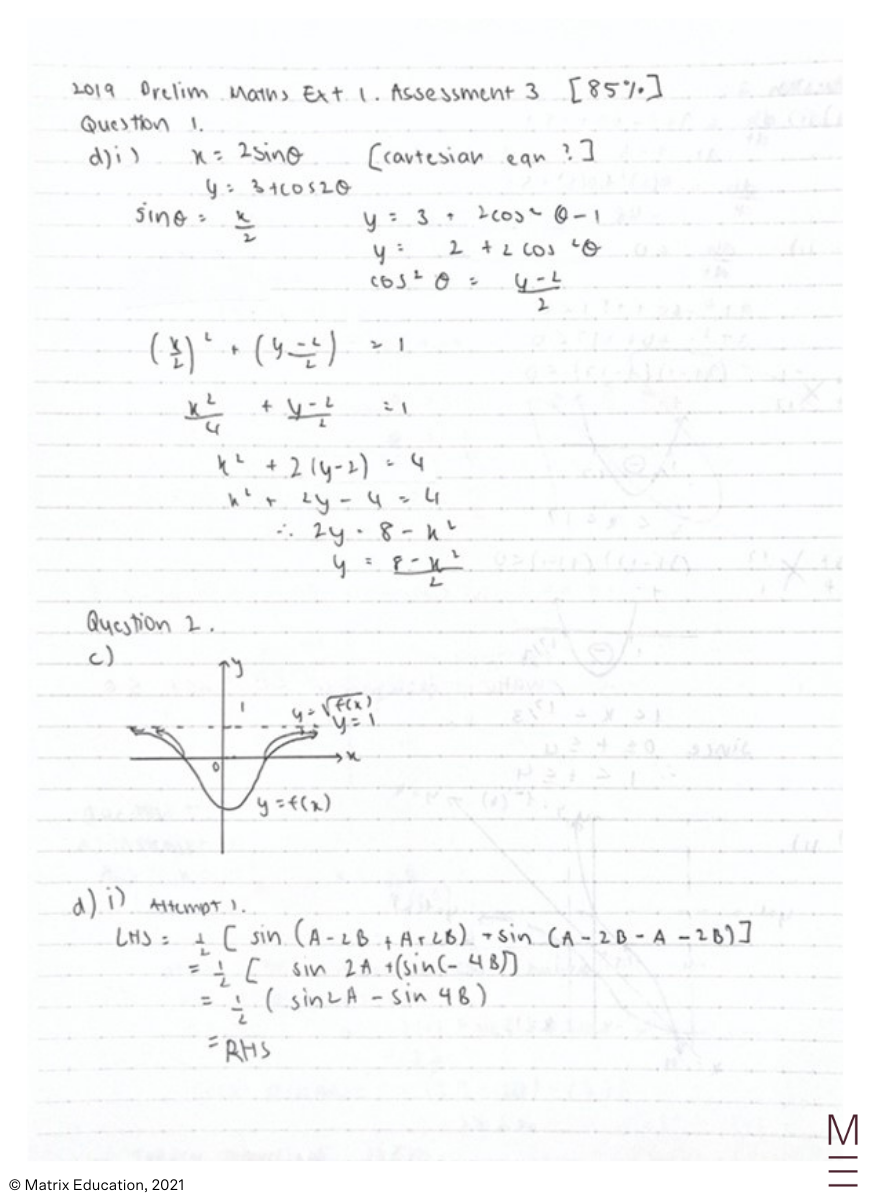 2019 Prelim Maths Ext 1. Assessment 3 [85%]
Question 1.
d) i) x = 2sinθ [cartesian eqn ?]
y = 3+cos2θ
sinθ = x/2 y = 3 + 2cos² θ - 1
y = 2 + 2 cos ²θ
cos² θ = (y-2)/2
(x/2)² + (y-2/2) = 1
x²/4 + (y-2)/2 = 1
x² + 2(y-2) = 4
x² + 2y - 4 = 4
∴ 2y = 8 - x²
y = (8 - x²)/2
Question 2.
c)
y
1
y = √f(x)
y = 1
x
0
y = f(x)
d) i) Attempt 1.
LHS = 1/2 [ sin (A - 2B + A + 2B) + sin (A - 2B - A - 2B)]
= 1/2 [ sin 2A + (sin(- 4B)]
= 1/2 ( sin2A - sin 4B)
= RHS
M
© Matrix Education, 2021